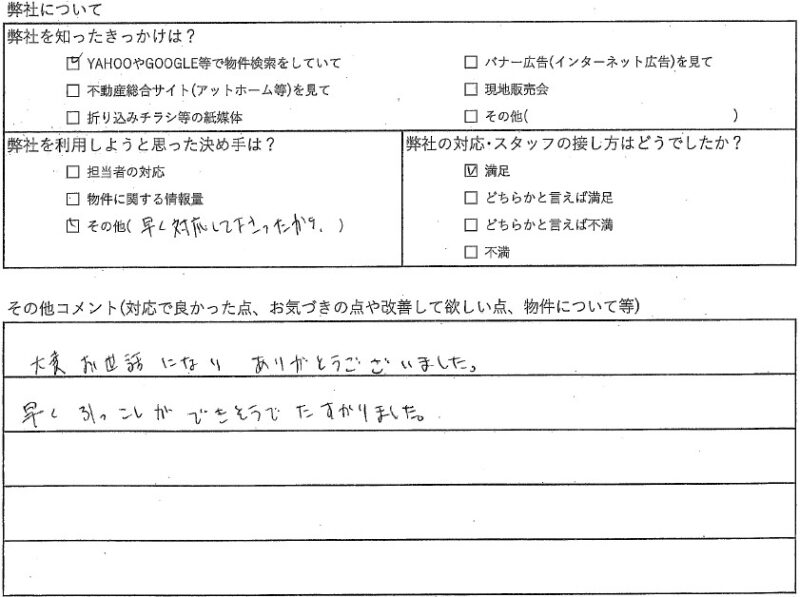 弊社について
弊社を知ったきっかけは？
☑ YAHOOやGOOGLE等で物件検索をしていて
□ バナー広告(インターネット広告)を見て
□ 不動産総合サイト(アットホーム等)を見て
□ 現地販売会
□ 折り込みチラシ等の紙媒体
□ その他( )
弊社を利用しようと思った決め手は？
□ 担当者の対応
□ 物件に関する情報量
☑ その他( 早く対応して下さったから。 )
弊社の対応・スタッフの接し方はどうでしたか？
☑ 満足
□ どちらかと言えば満足
□ どちらかと言えば不満
□ 不満
その他コメント(対応で良かった点、お気づきの点や改善して欲しい点、物件について等)
大変 お世話 になり ありがとうございました。
早く 引っこしが できそうで たすかりました。